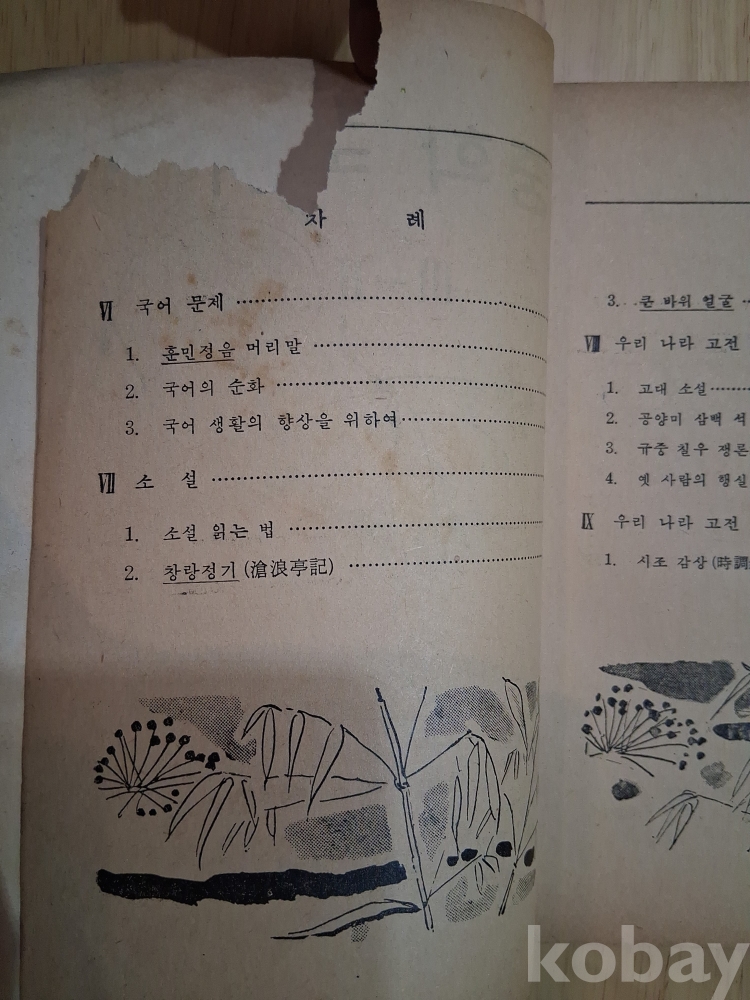 차 례
Ⅵ 국어 문제
1. 훈민정음 머리말
2. 국어의 순화
3. 국어 생활의 향상을 위하여
Ⅶ 소 설
1. 소설 읽는 법
2. 창랑정기 (滄浪亭記)
3. 큰 바위 얼굴
Ⅷ 우리 나라 고전
1. 고대 소설
2. 공양미 삼백 석
3. 규중 칠우 쟁론
4. 옛 사람의 행실
Ⅸ 우리 나라 고전
1. 시조 감상 (時調
kobay